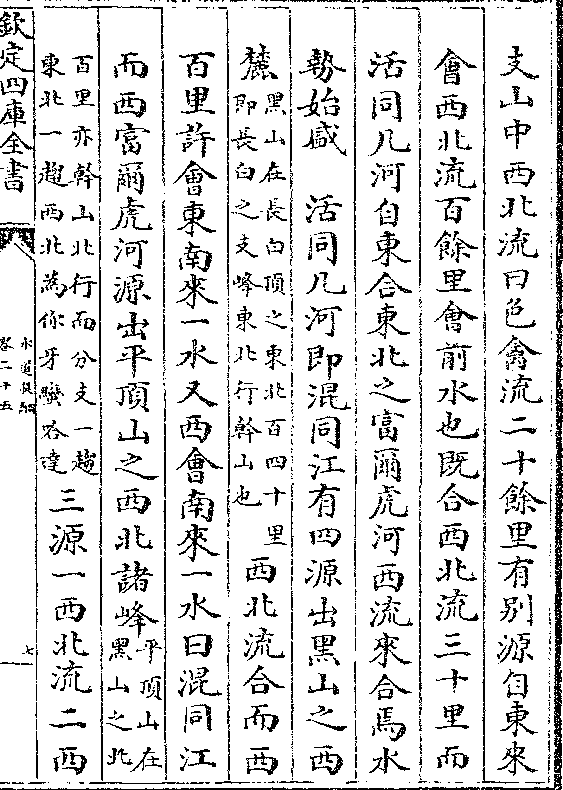 支山中西北流曰色禽流二十餘里有别源自東來
會西北流百餘里會前水也既合西北流三十里而
活同几河自東合東北之富爾虎河西流來合焉水
勢始盛　活同几河即混同江有四源出黑山之西
麓黑山在長白頂之東北百四十里即長白之支峰東北行幹山也西北流合而西
百里許會東南來一水又西會南來一水曰混同江
而西富爾虎河源出平頂山之西北諸峰平頂山在黑山之北
百里亦幹山北行而分支一趨東北一趨西北為你牙蠻谷達三源一西北流二西
欽定四庫全書
水道提綱
卷二十五
七